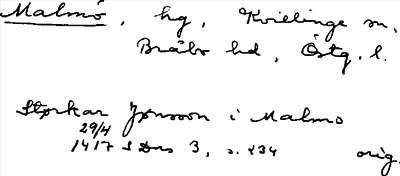 Malmö, hg, Kvillinge sn,
Bråbo hd, Östg. l.
Storkar Jønsson i Malmo
29/4
1417 SDns 3, s. 234 orig.